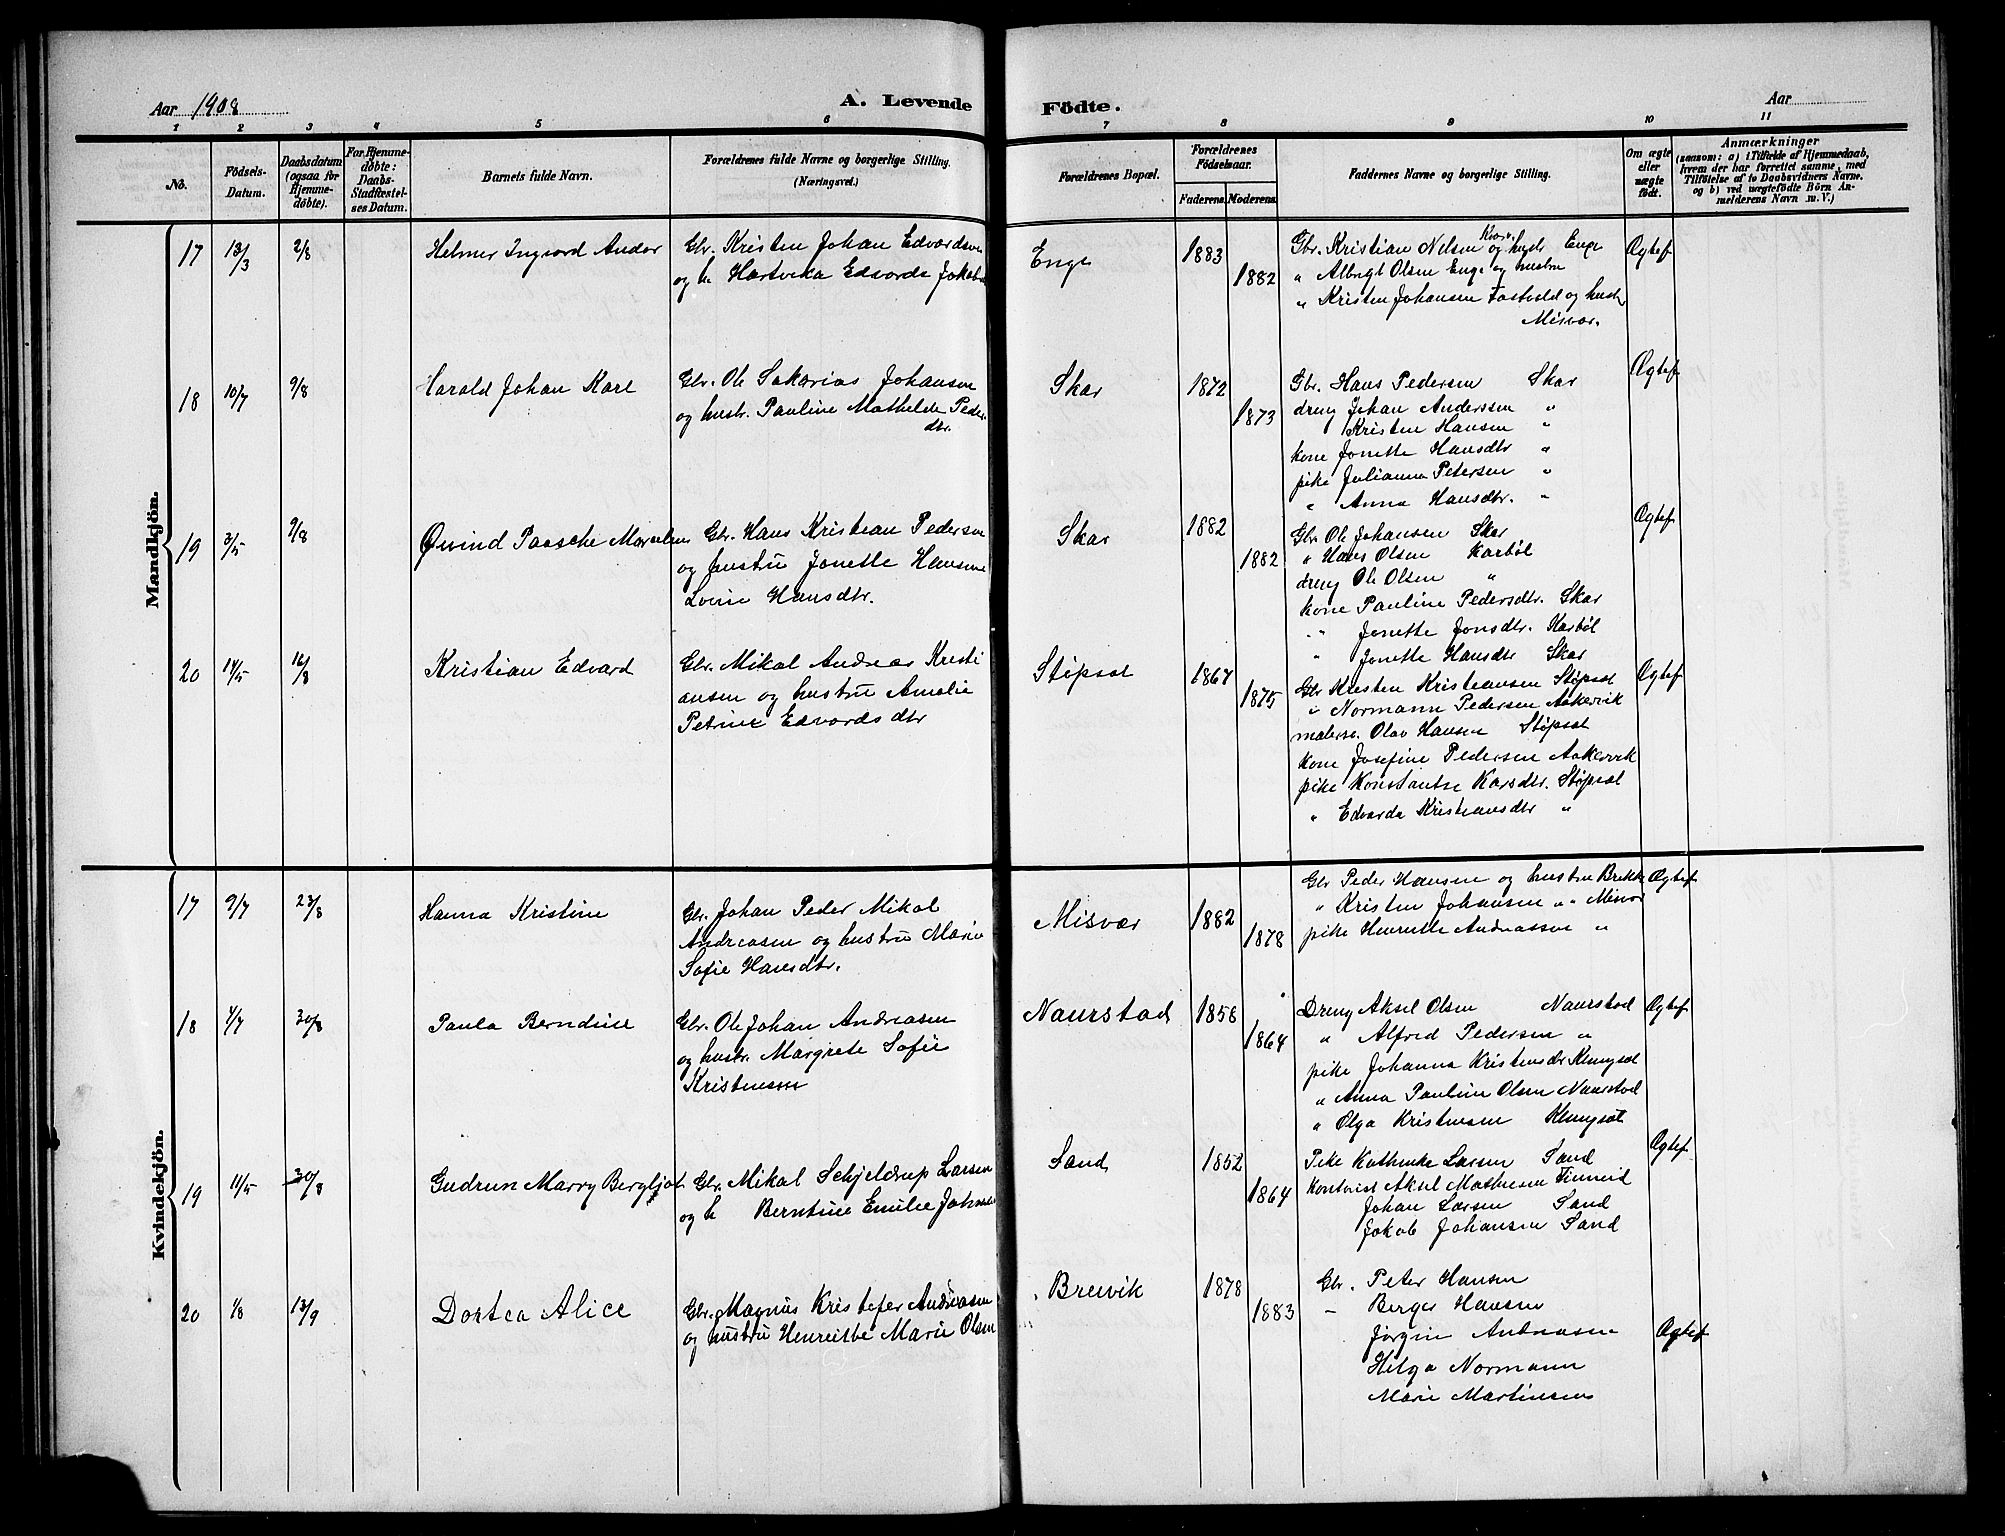 Aar 1908
A. Levende
Födte.
Aar
1 2 3 4 5 6 7 8 9 10 11
No.
Födsels-Datum.
Daabsdatum (ogsaa for Hjemmedöbte).
For Hjemmedöbte: Daabs-Stadfæstelses Datum.
Barnets fulde Navn.
Forældrenes fulde Navne og borgerlige Stilling.
(Næringsvei.)
Forældrenes Bopæl.
Forældrenes Födselsaar.
Faderens. Moderens.
Faddernes Navne og borgerlige Stilling.
Om ægte eller uægte födt.
Anmærkninger
(saasom: a) i Tilfælde af Hjemmedaab, hvem der har forrettet samme, med Tilföielse af to Daabsvidners Navne. og b) ved uægtefödte Börn Anmelderens Navn m. V.)
Mandkjön.
17 13/3 2/8 Helmer Ingvard Andor
Gbr. Kristen Johan Edvardsen
og h. Hartvika Edvarda Jakobs
Enge 1883 1882
Gbr. Kristian Nilsen og hustr Enge
" Albrigt Olsen Enge og hustru
" Kristen Johansen Tostvold og hustr
Misvær.
Ægtef
18 10/7 9/8 Harald Johan Karl
Gbr. Ole Sakarias Johansen
og hustr. Pauline Mathilde Peders
dtr.
Skar 1872 1873
Gbr. Hans Pedersen Skar
dreng Johan Anderssen "
Kristen Hansen "
kone Jonette Hansdtr "
pike Julianna Petersen "
" Anna Hansdtr. "
Ægtef
19 3/5 9/8 Øivind Paasche Marselius
Gbr. Hans Kristian Pedersen
og hustru Jonette Hansine
Lovise Hansdtr.
Skar 1882 1882
Gbr Ole Johansen Skar
" Hans Olsen Karbøl
dreng Ole Olsen "
kone Pauline Pedersdtr. Skar
" Jonette Jonsdtr. Karbøl
" Jonette Hansdtr Skar
Ægtef
20 14/5 16/8 Kristian Edvard
Gbr. Mikal Andreas Kristi
ansen og hustru Amalie
Petrine Edvardsdtr
Støpsat 1867 1875
Gbr Kristen Kristiansen Støpsat
" Normann Pedersen Aakervik
Olav Hansen Støpsat
kone Josefine Pedersen Aakervik
pike Konstantse Karsdtr. Støpsat
" Edvarda Kristiansdtr "
Ægtef
Kvindekjön.
17 9/7 23/8 Hanna Kristine
Gbr. Johan Peder Mikal
Andreasen og hustru Marie
Sofie Hansdtr.
Misvær 1882 1878
Gbr Peder Hansen og hustru Brekke
" Kristen Johansen " " Misvær
pike Henriette Andreassen "
Ægtef
18 4/7 30/8 Paula Berndine
Gbr. Ole Johan Andreasen
og hustr. Margrete Sofie
Kristensen
Naurstad 1858 1864
Dreng Aksel Olsen Naurstad
" Alfred Pedersen "
pike Johanna Kristensdr Klungsat
" Anna Pauline Olsen Naurstad
" Olga Kristensen Klungsat
Ægtef
19 11/5 30/8 Gudrun Marry Bergljot
Gbr. Mikal Schjeldrup Larsen
og h Berntine Emilie Johnsen
Sand 1852 1864
Pike Kathinke Larsen Sand
Aksel Mathisen Finneid
Johan Larsen Sand
Jakob Johansen Sand
Ægtef
20 1/8 13/9 Dortea Alice
Gbr. Magnus Kristofer Andreasen
og hustru Henriette Marie Olsen
Breivik 1878 1883
Gbr. Peter Hansen
- Berger Hansen
Jørgine Andreasen
Helga Normann
Marie Martinsen
Ægtef